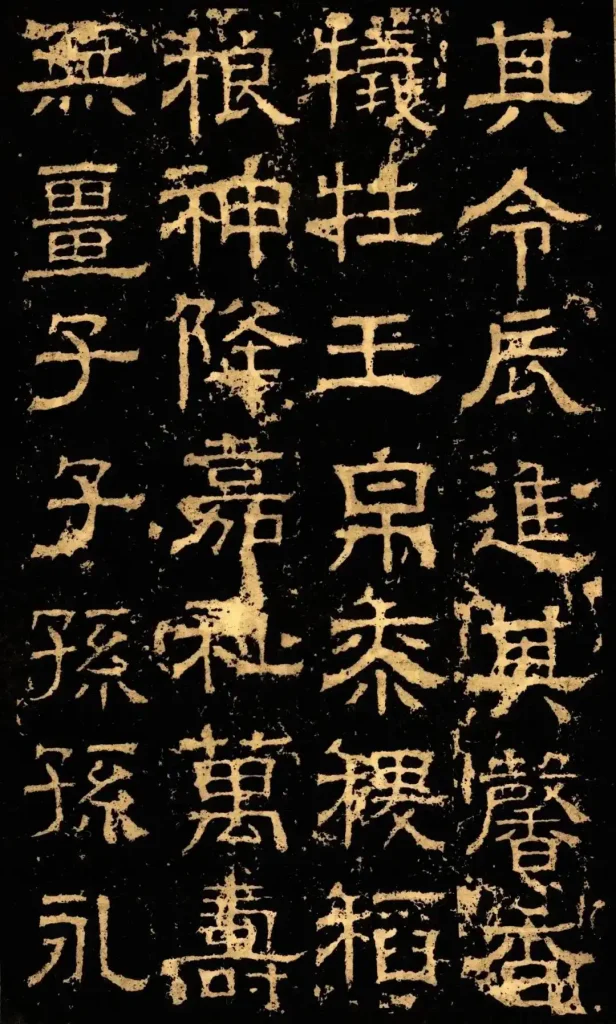 其令辰進其馨香
犠牲玉帛黍稷稻
稂神降嘉祉萬壽
無畺子子孫孫永